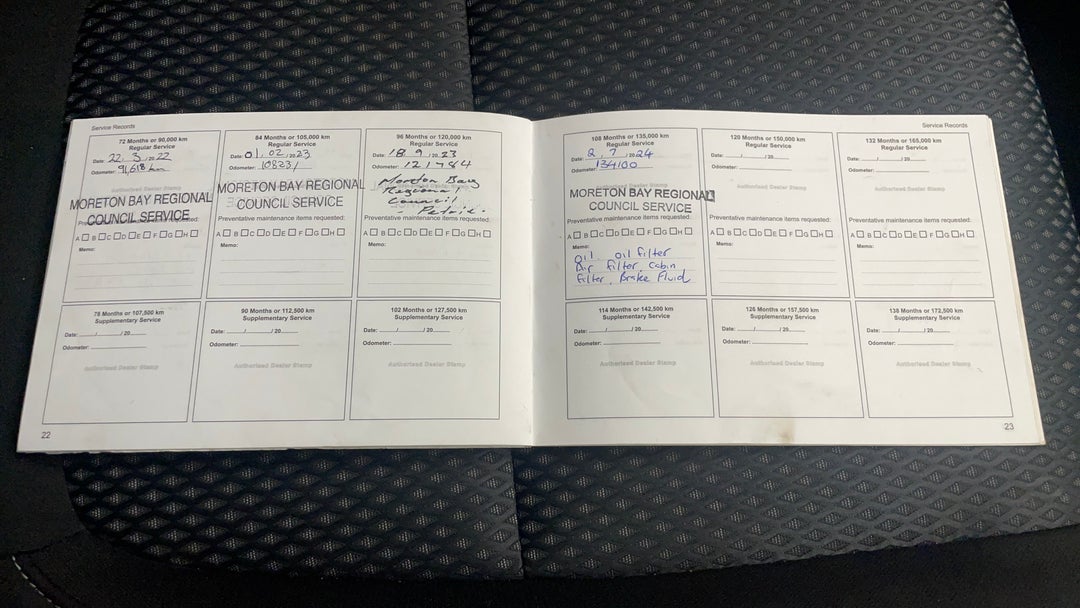 Service Records
72 Months or 90,000 km
Regular Service
Date: 22, 3, 2022
Odometer: 91,618 km
Authorised Dealer Stamp
MORETON BAY REGIONAL
COUNCIL SERVICE
Preventative maintenance items requested:
A B C D E F G H
Memo:
84 Months or 105,000 km
Regular Service
Date: 01, 02, 2023
Odometer: 108231
MORETON BAY REGIONAL
COUNCIL SERVICE
Preventative maintenance items requested:
A B C D E F G H
Memo:
96 Months or 120,000 km
Regular Service
Date: 18, 9, 2023
Odometer: 121784
Moreton Bay
Regional
Council
- Petrie.
Preventative maintenance items requested:
A B C D E F G H
Memo:
78 Months or 107,500 km
Supplementary Service
Date: / / 20
Odometer:
Authorised Dealer Stamp
90 Months or 112,500 km
Supplementary Service
Date: / / 20
Odometer:
Authorised Dealer Stamp
102 Months or 127,500 km
Supplementary Service
Date: / / 20
Odometer:
Authorised Dealer Stamp
22
Service Records
108 Months or 135,000 km
Regular Service
Date: 2, 7, 2024
Odometer: 134100
MORETON BAY REGIONAL
COUNCIL SERVICE
Preventative maintenance items requested:
A B C D E F G H
Memo:
Oil, oil filter
Air filter, Cabin
filter, Brake Fluid
120 Months or 150,000 km
Regular Service
Date: / / 20
Odometer:
Authorised Dealer Stamp
Preventative maintenance items requested:
A B C D E F G H
Memo:
132 Months or 165,000 km
Regular Service
Date: / / 20
Odometer:
Authorised Dealer Stamp
Preventative maintenance items requested:
A B C D E F G H
Memo:
114 Months or 142,500 km
Supplementary Service
Date: / / 20
Odometer:
Authorised Dealer Stamp
126 Months or 157,500 km
Supplementary Service
Date: / / 20
Odometer:
Authorised Dealer Stamp
138 Months or 172,500 km
Supplementary Service
Date: / / 20
Odometer:
Authorised Dealer Stamp
23